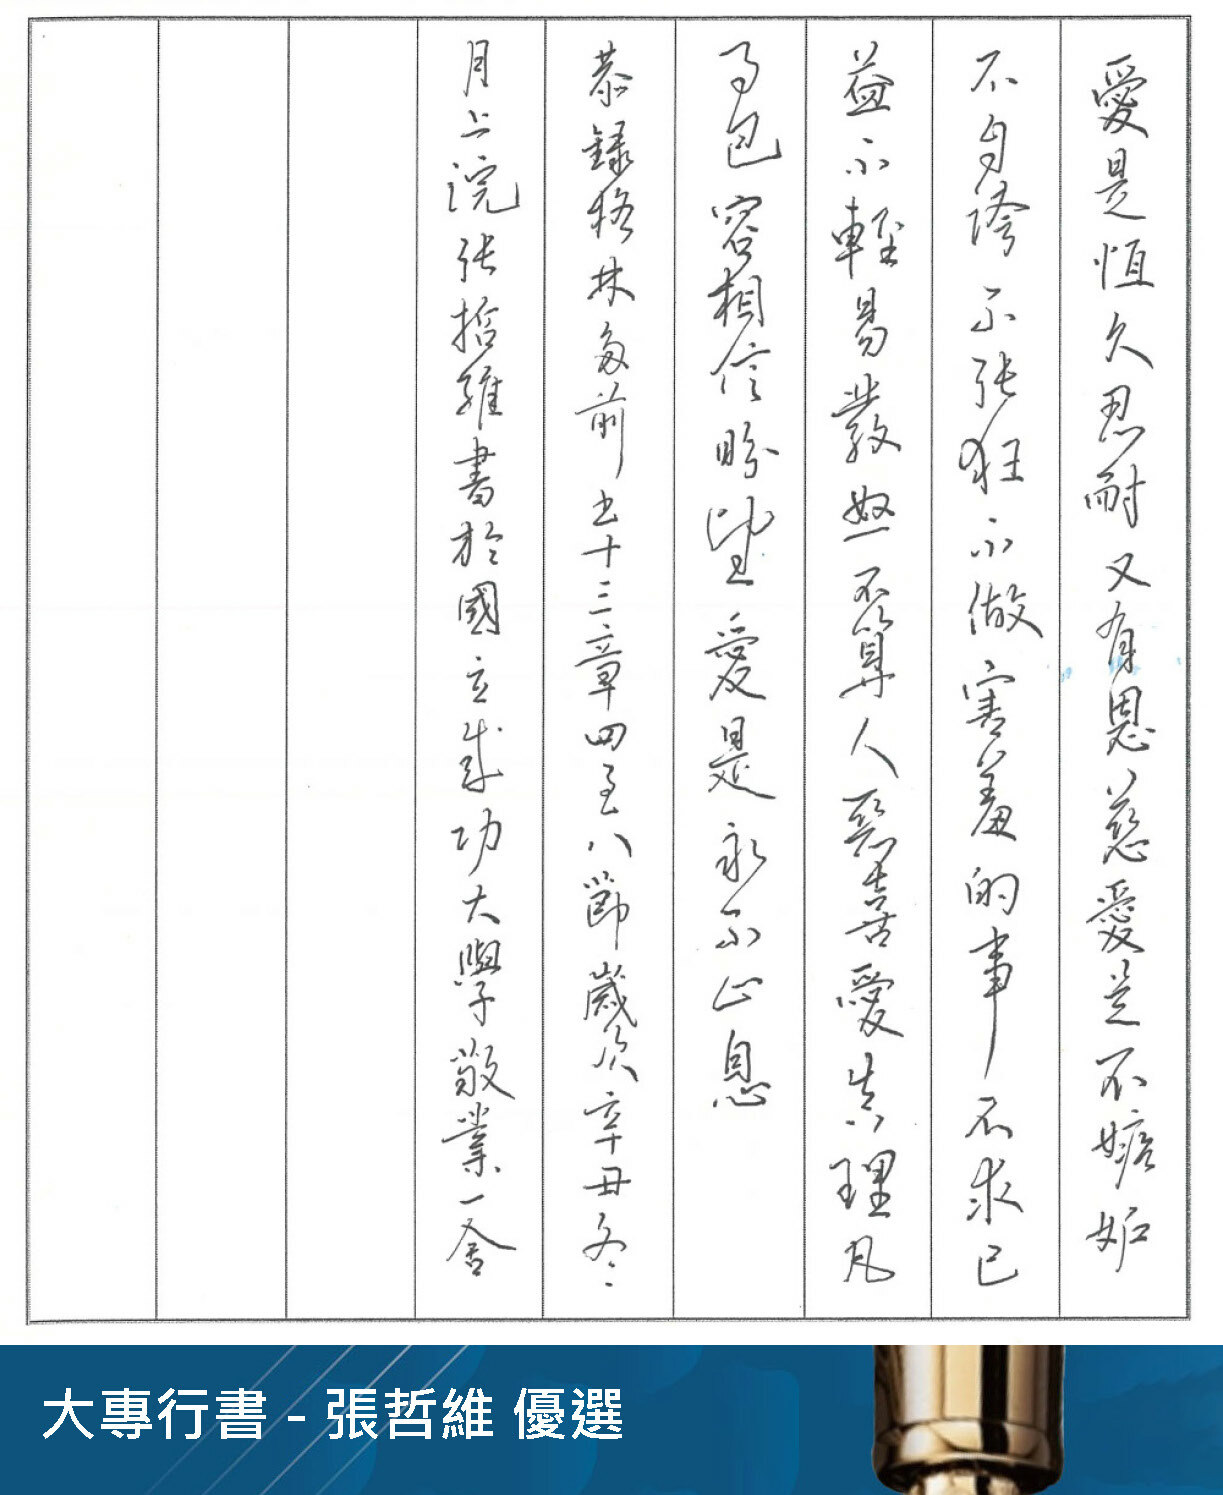 愛是恆久忍耐又有恩慈愛是不嫉妒
不自誇不張狂不做害羞的事不求己
益不輕易發怒不算人惡喜愛真理凡
事包容相信盼望愛是永不止息
恭錄格林多前書十三章四至八節歲次辛丑冬
月上浣張哲維書於國立成功大學敬業一舍
大專行書 - 張哲維 優選